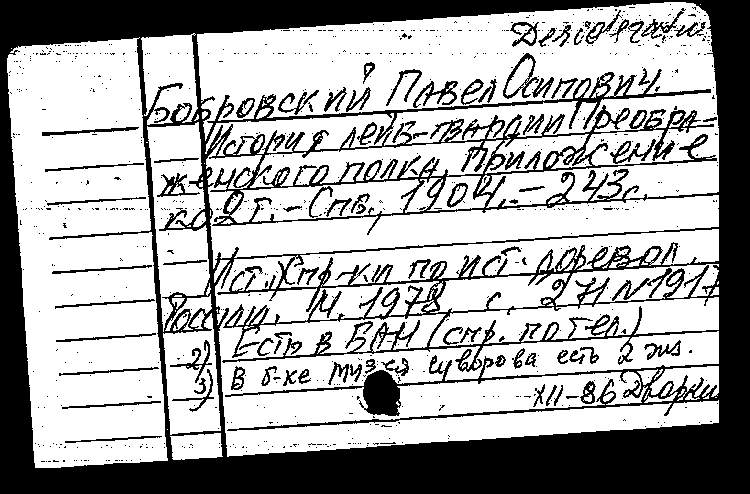 Desiderata
Бобровский Павел Осипович.
История лейб-гвардии Преобра-
женского полка. Приложение
ко 2 т. - Спб., 1904. - 243 с.
Ист.: Спр-ки по ист. доревол.
России. М. 1978, с. 271 №1917
Есть в БАН (спр. по тел.)
2)
3) В б-ке музея Суворова есть 2 экз.
XII-86 Дворки